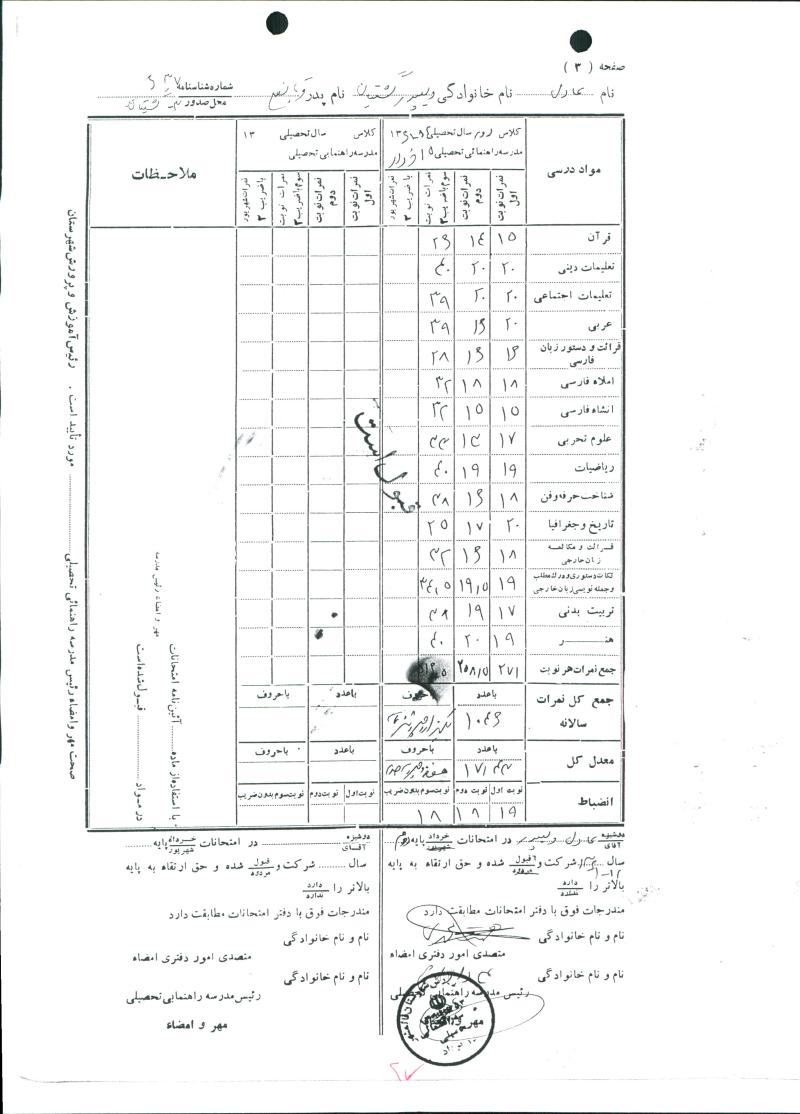 صفحه ( ۳ )
نام عادل نام خانوادگی نام پدر شماره شناسنامه
محل صدور
مواد درسی
کلاس دوم سال تحصیلی ۱۳
مدرسه راهنمائی تحصیلی ۱۵ خرداد
نمرات نوبت اول
نمرات نوبت دوم
نمرات نوبت سوم با ضریب ۲
نمرات شهریور با ضریب ۲
کلاس سال تحصیلی ۱۳
مدرسه راهنمایی تحصیلی
نمرات نوبت اول
نمرات نوبت دوم
نمرات نوبت سوم با ضریب ۲
نمرات شهریور با ضریب ۲
ملاحظات
قرآن ۱۵ ۱۴ ۲۶
تعلیمات دینی ۲۰ ۲۰ ۴۰
تعلیمات اجتماعی ۲۰ ۲۰ ۳۹
عربی ۲۰ ۱۶ ۳۹
قرائت و دستور زبان فارسی ۱۶ ۱۶ ۲۸
املاء فارسی ۱۸ ۱۸ ۳۲
انشاء فارسی ۱۵ ۱۵ ۳۲
علوم تجربی ۱۷ ۱۳ ۳۳
ریاضیات ۱۹ ۱۹ ۴۰
شناخت حرفه و فن ۱۸ ۱۶ ۳۸
تاریخ و جغرافیا ۲۰ ۱۷ ۲۵
قرائت و مکالمه زبان خارجی ۱۸ ۱۶ ۳۲
نکات دستوری و درک مطلب و جمله نویسی زبان خارجی ۱۹ ۱۹/۵ ۳۴/۵
تربیت بدنی ۱۷ ۱۹ ۳۸
هنر ۱۹ ۲۰ ۴۰
جمع نمرات هر نوبت ۲۷۱ ۲۵۸/۵
قبول است
جمع کل نمرات سالانه
باعدد باحروف باعدد باحروف
۱۰۴۶
معدل کل
باعدد باحروف باعدد باحروف
۱۷/۴۳
انضباط
نوبت اول نوبت دوم نوبت سوم بدون ضریب نوبت اول نوبت دوم نوبت سوم بدون ضریب
۱۹ ۱۸ ۱۸
با استفاده از ماده آئین نامه امتحانات
در مواد قبول شده است
مهر و امضاء رئیس مدرسه
صحت مهر و امضاء رئیس مدرسه راهنمائی تحصیلی مورد تأیید است . رئیس آموزش و پرورش شهرستان
دوشیزه
آقای عادل در امتحانات خرداد
شهریور پایه دوم
سال شرکت و قبول
مردود شده و حق ارتقاء به پایه
بالاتر را دارد
ندارد
مندرجات فوق با دفتر امتحانات مطابقت دارد
نام و نام خانوادگی
متصدی امور دفتری امضاء
نام و نام خانوادگی
رئیس مدرسه راهنمایی تحصیلی
مهر و امضاء
دوشیزه
آقای در امتحانات خرداد
شهریور پایه
سال شرکت و قبول
مردود شده و حق ارتقاء به پایه
بالاتر را دارد
ندارد
مندرجات فوق با دفتر امتحانات مطابقت دارد
نام و نام خانوادگی
متصدی امور دفتری امضاء
نام و نام خانوادگی
رئیس مدرسه راهنمایی تحصیلی
مهر و امضاء